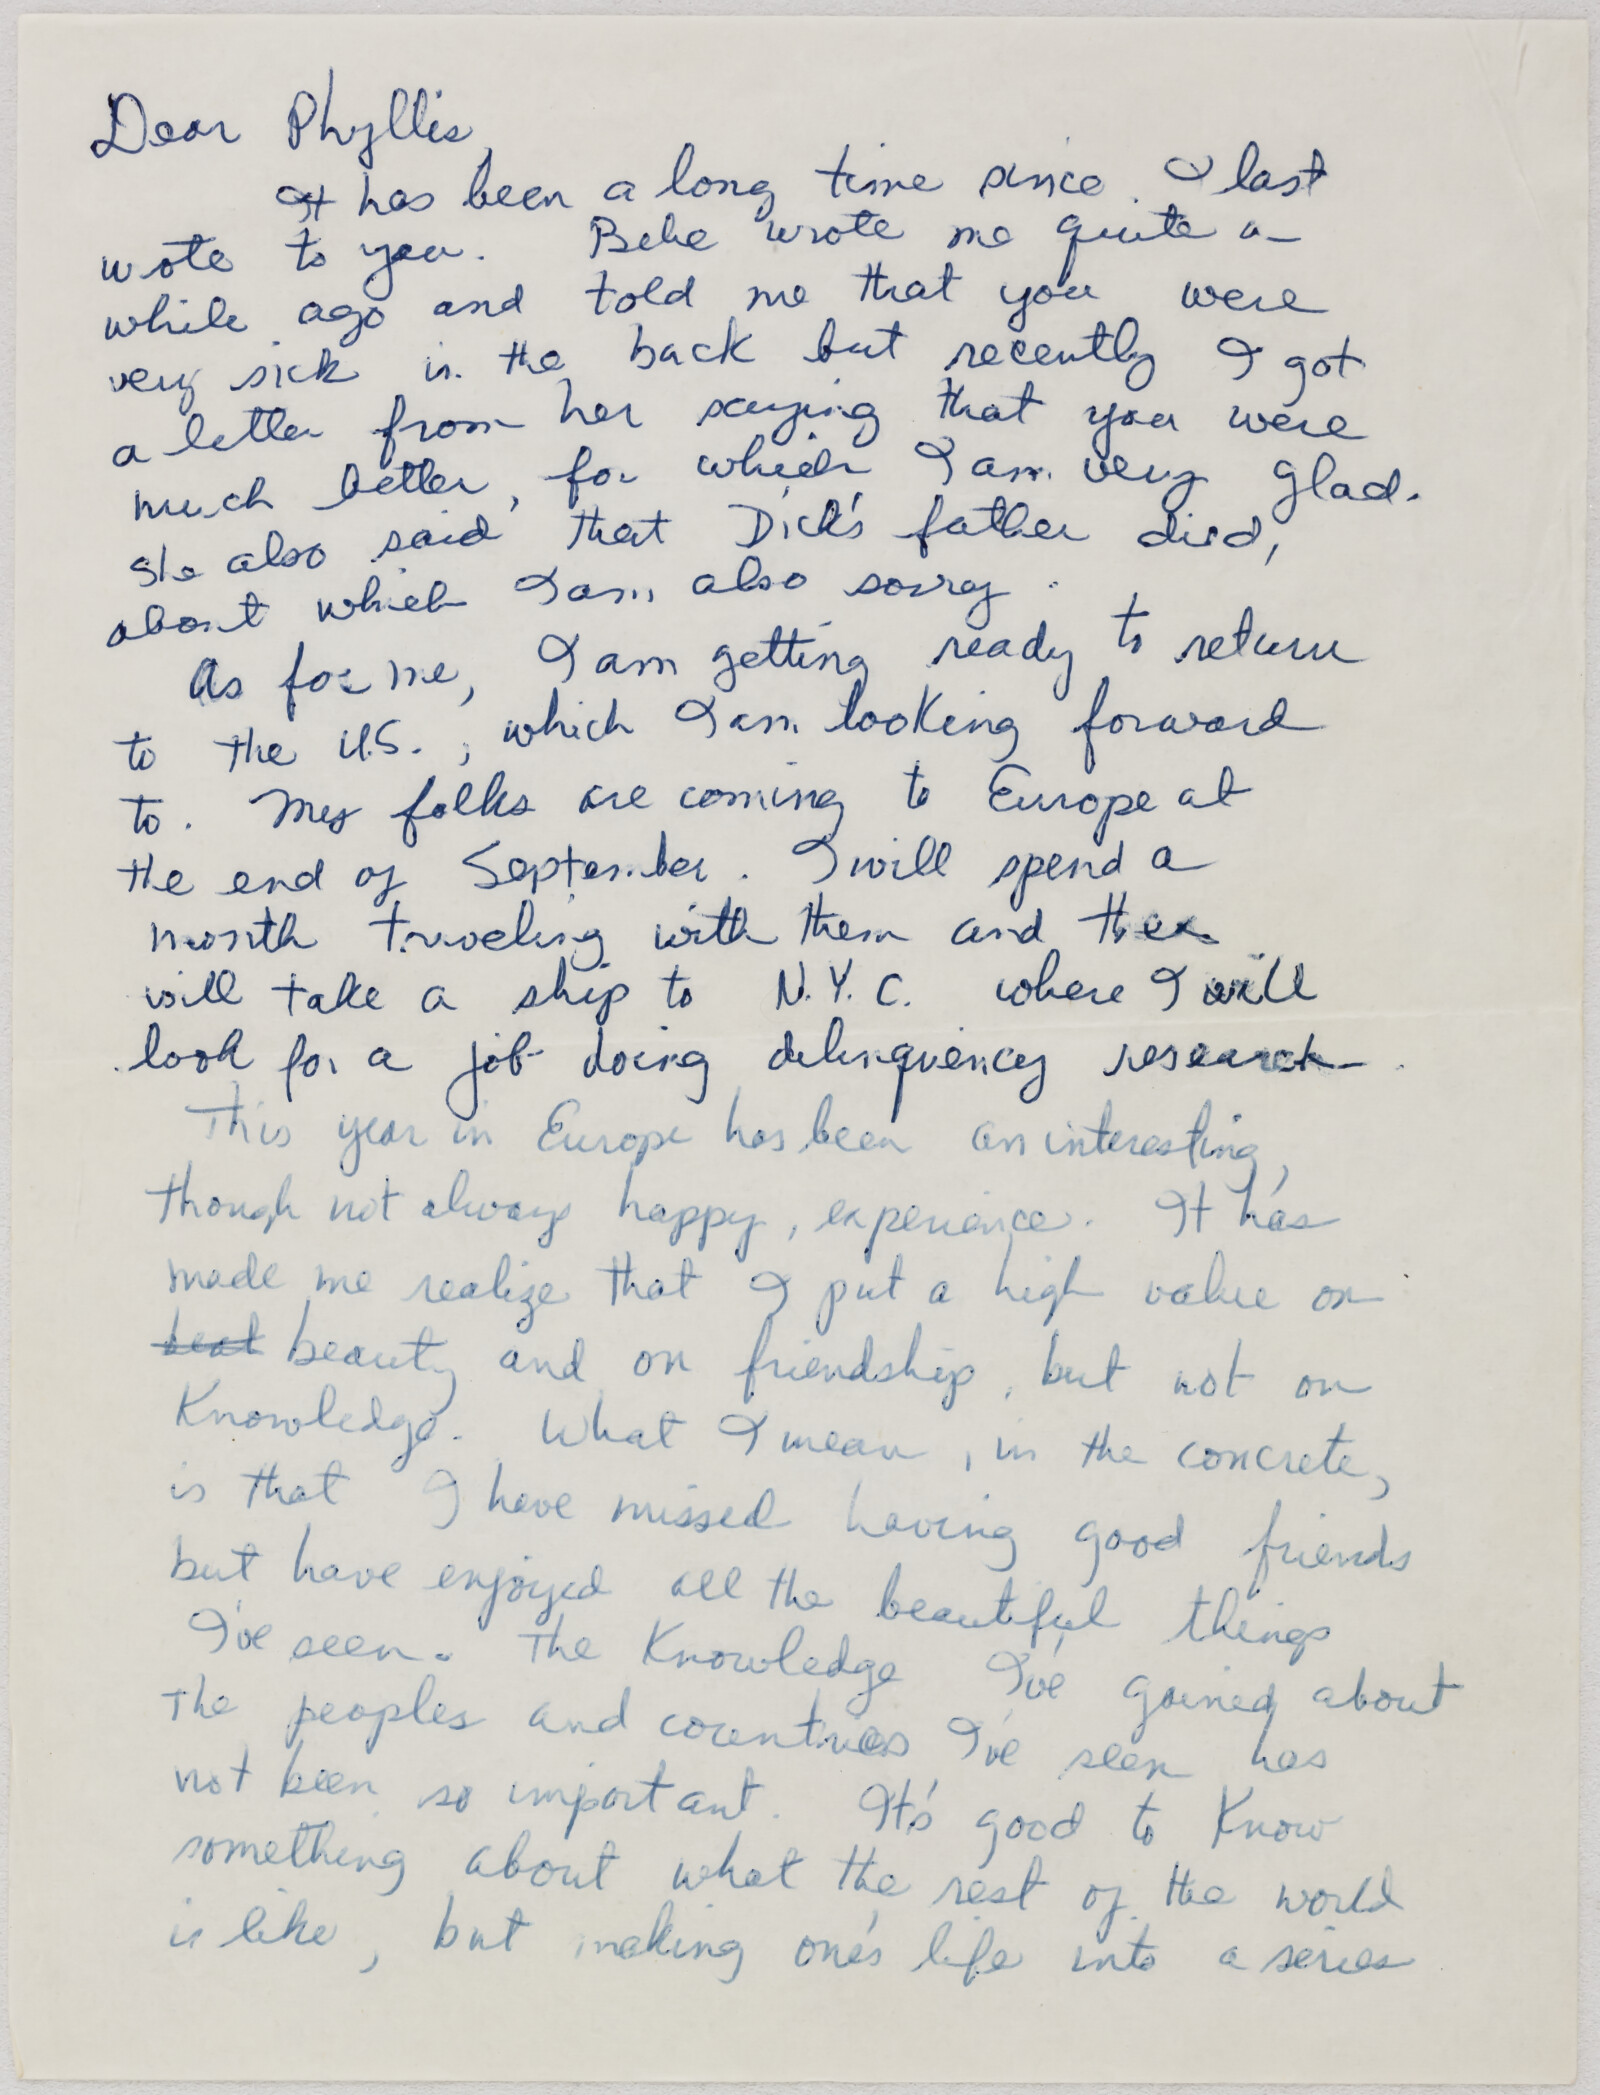 Dear Phyllis,
It has been a long time since I last
wrote to you. Bebe wrote me quite a
while ago and told me that you were
very sick in the back but recently I got
a letter from her saying that you were
much better, for which I am very glad.
She also said that Dick's father died,
about which I am also sorry.
As for me, I am getting ready to return
to the U.S., which I am looking forward
to. My folks are coming to Europe at
the end of September. I will spend a
month traveling with them and then
will take a ship to N.Y.C. where I will
look for a job doing delinquency research.
This year in Europe has been an interesting,
though not always happy, experience. It has
made me realize that I put a high value on
beat beauty and on friendship, but not on
Knowledge. What I mean, in the concrete,
is that I have missed having good friends
but have enjoyed all the beautiful things
I've seen. The Knowledge I've gained about
the peoples and countries I've seen has
not been so important. It's good to Know
something about what the rest of the world
is like, but making one's life into a series